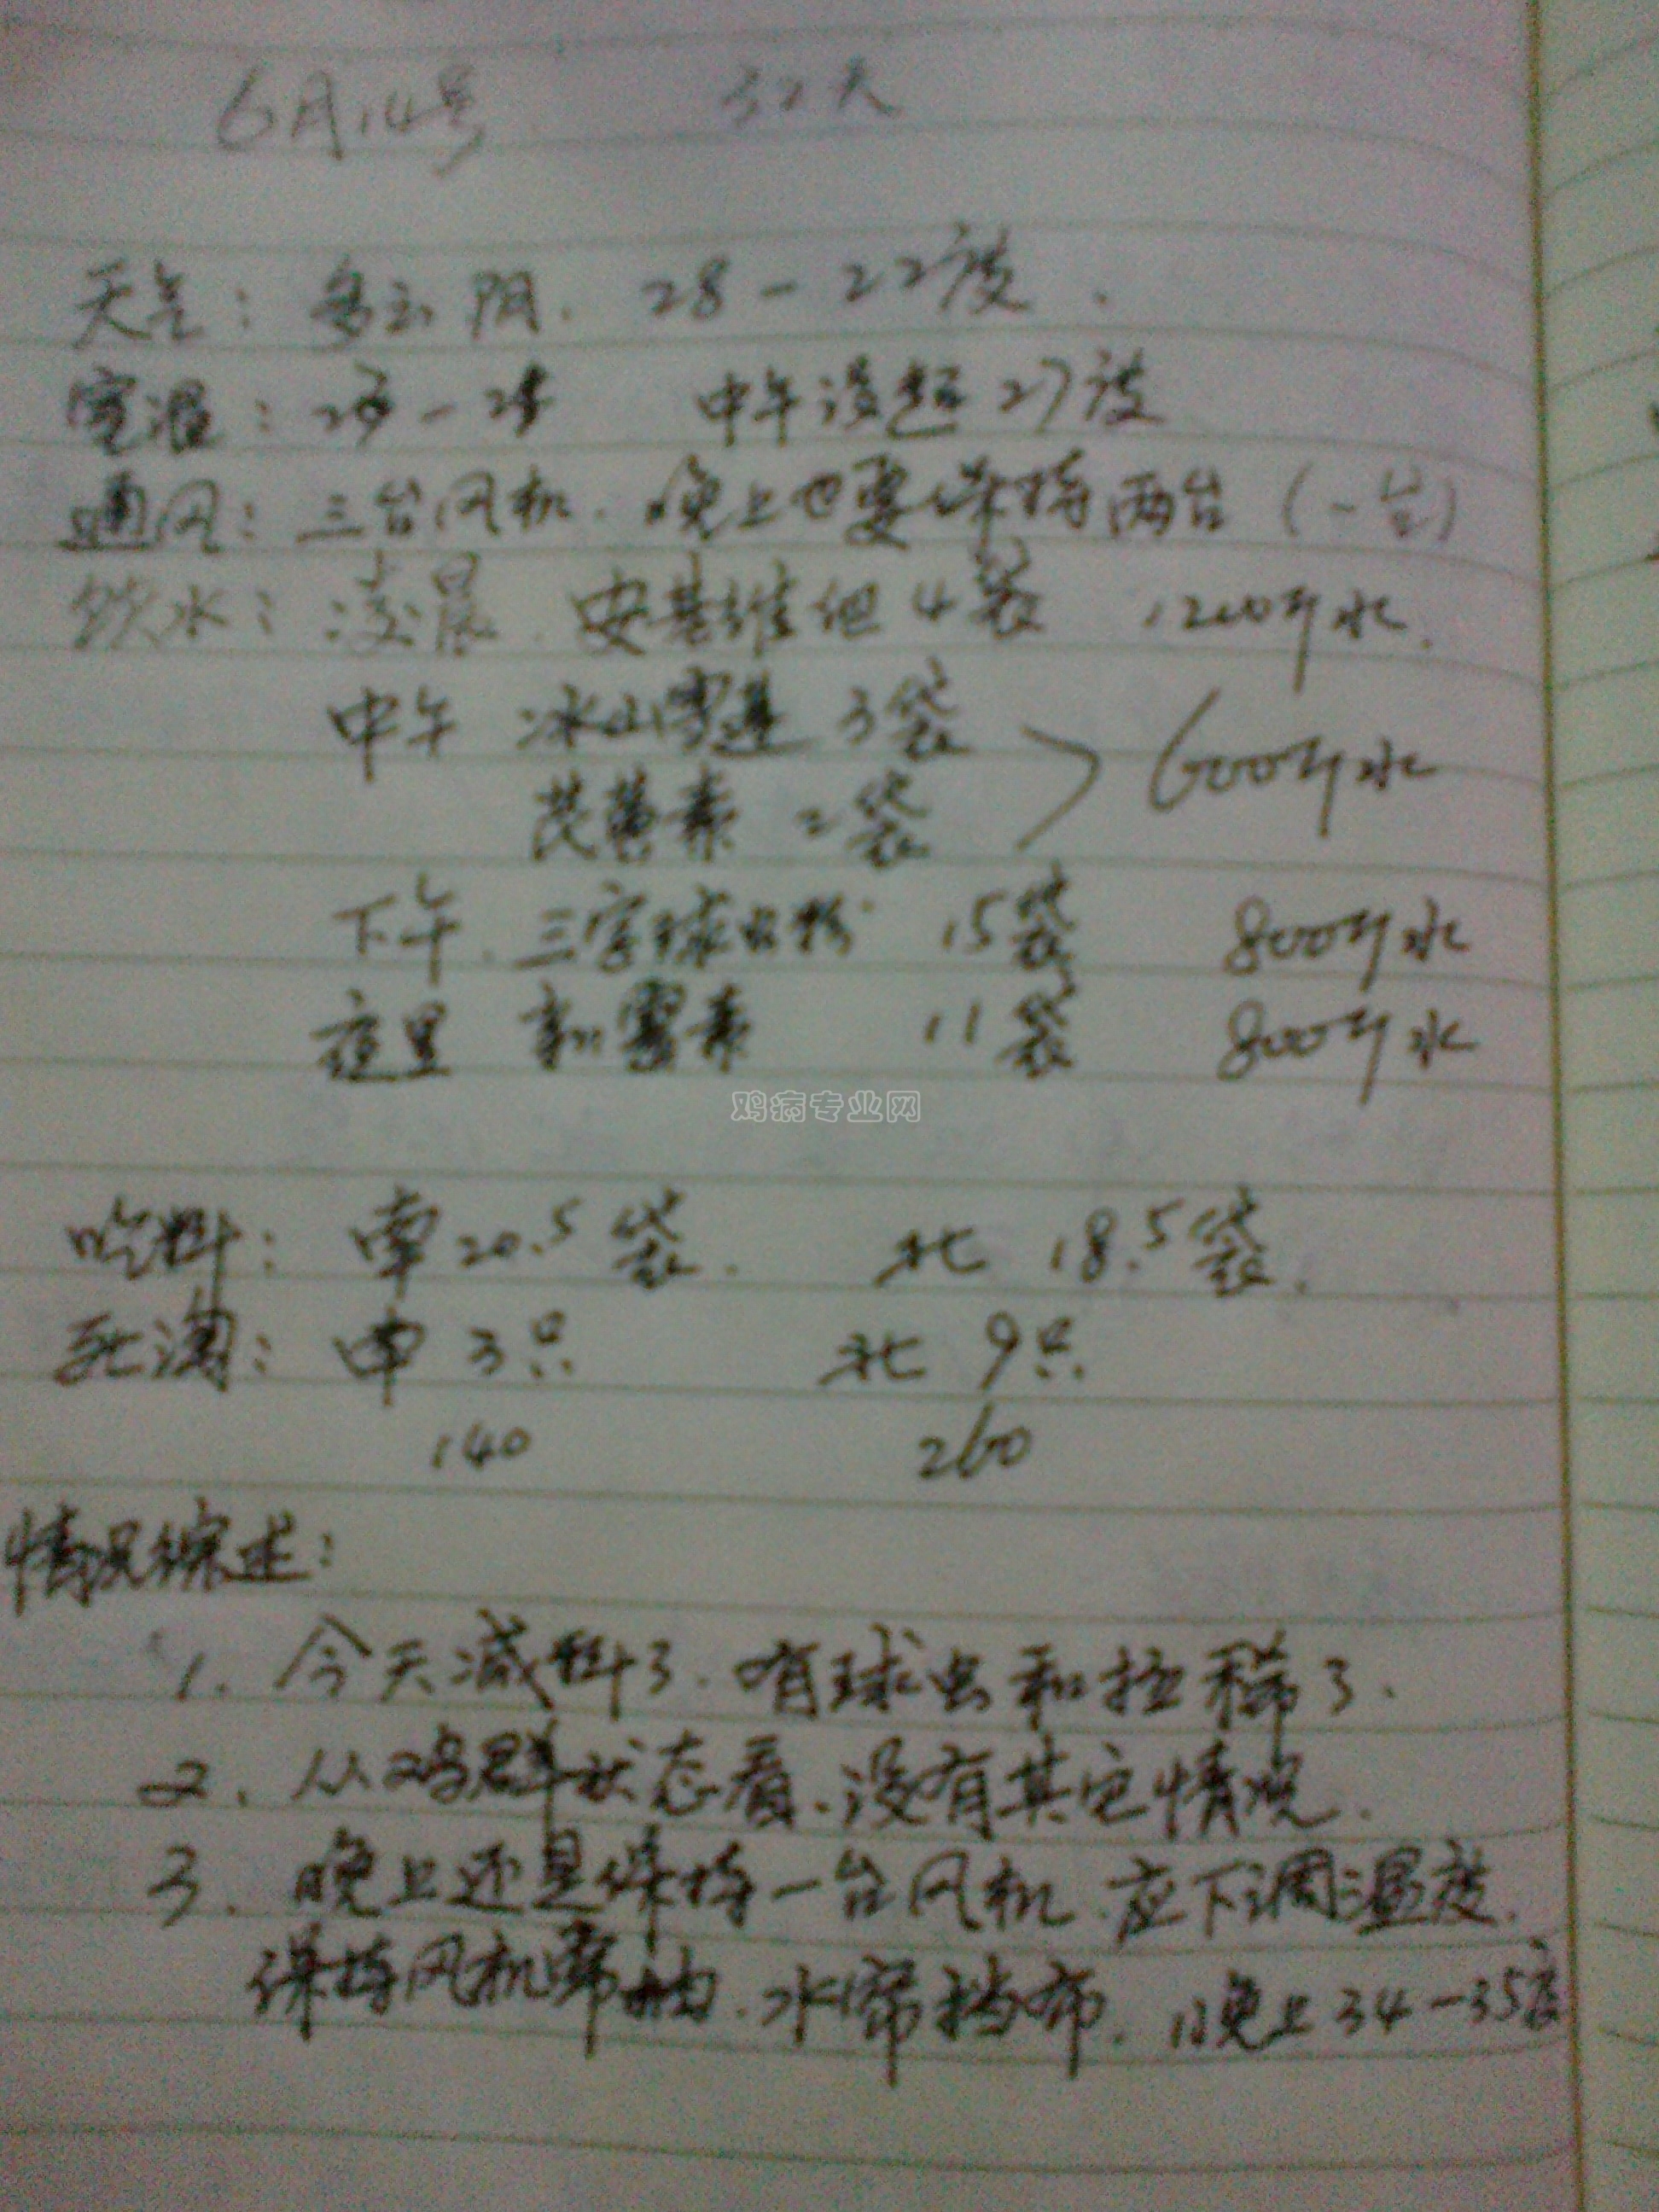 6月14号 32天
天气：多云 阴. 28－22度.
室温：26－25 中午没超27度
通风：三台风机. 晚上也要保持两台（一台）
饮水：凌晨. 安基维他4袋 1200斤水.
中午 冰山雪莲 3袋
600斤水
芪黄素 2袋
下午. 三字球虫粉 15袋 800斤水
夜里 新霉素 11袋 800斤水
鸡病专业网
吃料：南20.5袋. 北 18.5袋.
死淘：南 3只 北 9只
140 260
情况综述：
1. 今天减料了. 有球虫和拉稀了.
2. 从鸡群状态看. 没有其它情况.
3. 晚上还是保持一台风机. 应下调温度.
保持风机常 . 水帘档布. 晚上34－35度